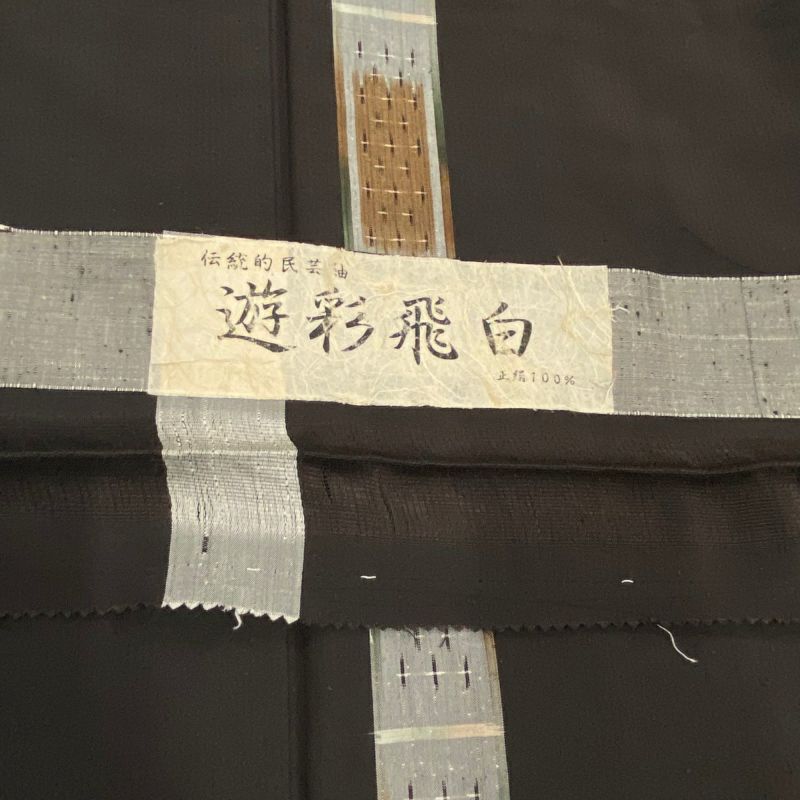 伝統的民芸紬
遊彩飛白
正絹100%